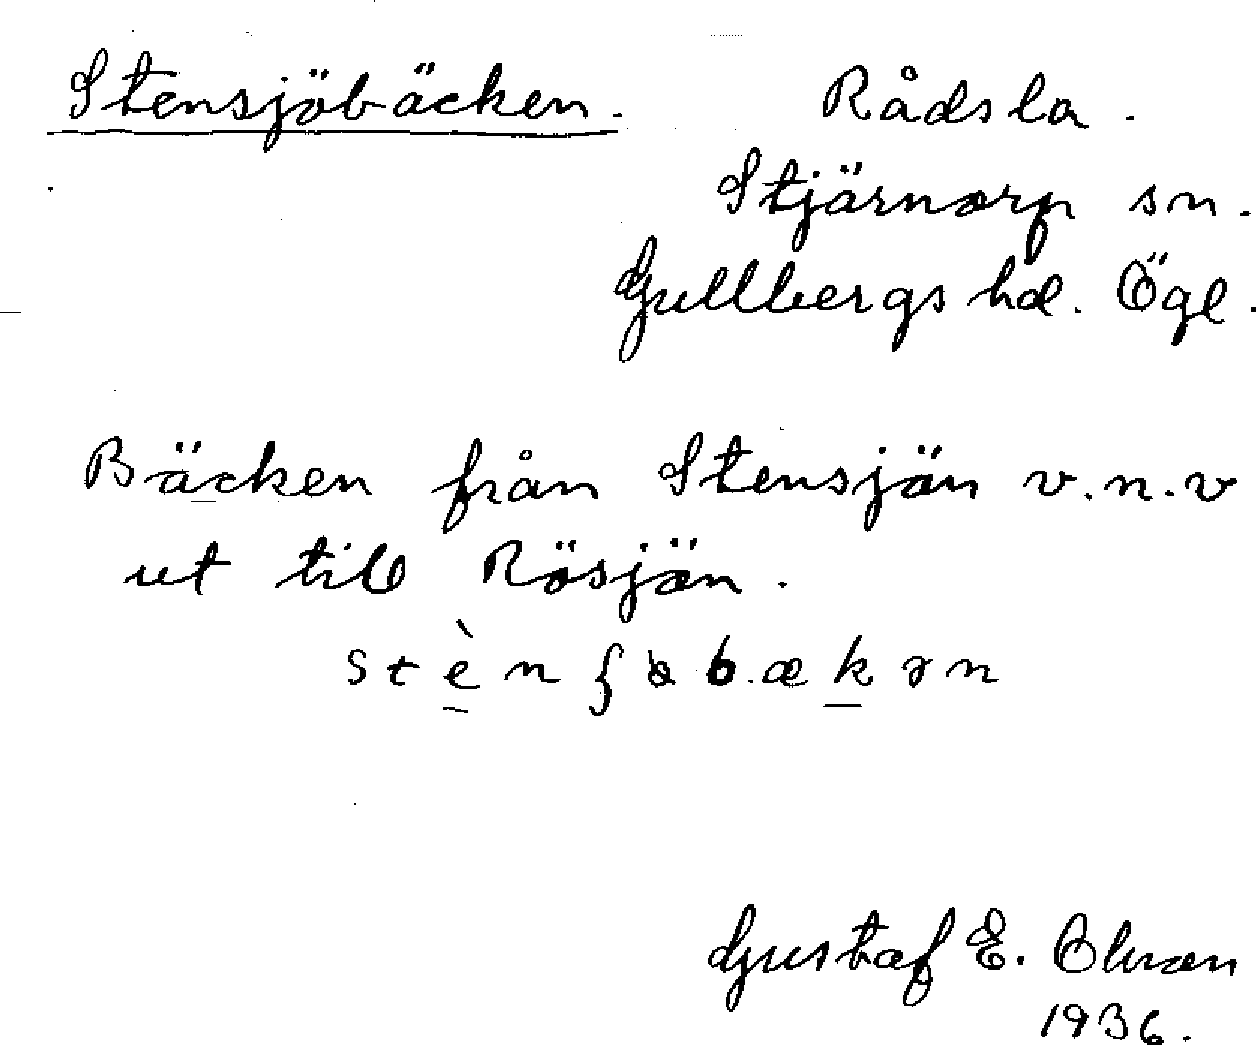 Stensjöbäcken. Rådsla.
Stjärnorp sn.
Gullbergs hd. Ögl.
Bäcken från Stensjön v.n.v
ut till Rösjön.
Gustaf E.
1936.